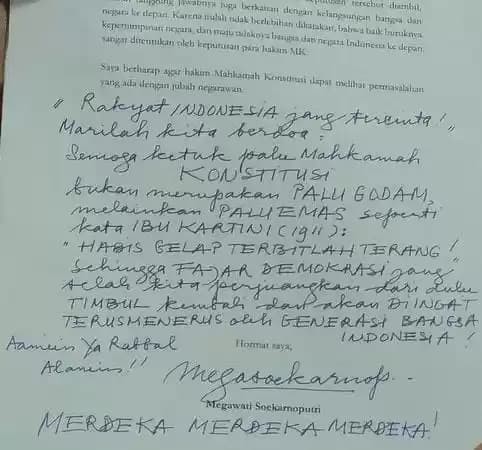 tanggung jawabnya juga berkaitan dengan kelangsungan bangsa dan
negara ke depan. Karena itulah tidak berlebihan dikatakan, bahwa baik buruknya
kepemimpinan negara, dan maju tidaknya bangsa dan negara Indonesia ke depan,
sangat ditentukan oleh keputusan para hakim MK.
Saya berharap agar hakim Mahkamah Konstitusi dapat melihat permasalahan
yang ada dengan jubah negarawan.
" Rakyat INDONESIA jang tercinta! "
Marilah kita berdoa :
Semoga ketuk palu Mahkamah
KONSTITUSI
bukan merupakan PALU GODAM,
melainkan PALU EMAS seperti
kata IBU KARTINI (1911) :
" HABIS GELAP TERBITLAH TERANG ! "
Sehingga FAJAR DEMOKRASI jang
telah kita perjuangkan dari dulu
TIMBUL kembali dan akan DIINGAT
TERUSMENERUS oleh GENERASI BANGSA
INDONESIA !
Aamiin Ya Rabbal
Alamin!!
Hormat saya,
Megasoekarnop..
Megawati Soekarnoputri
MERDEKA MERDEKA MERDEKA!